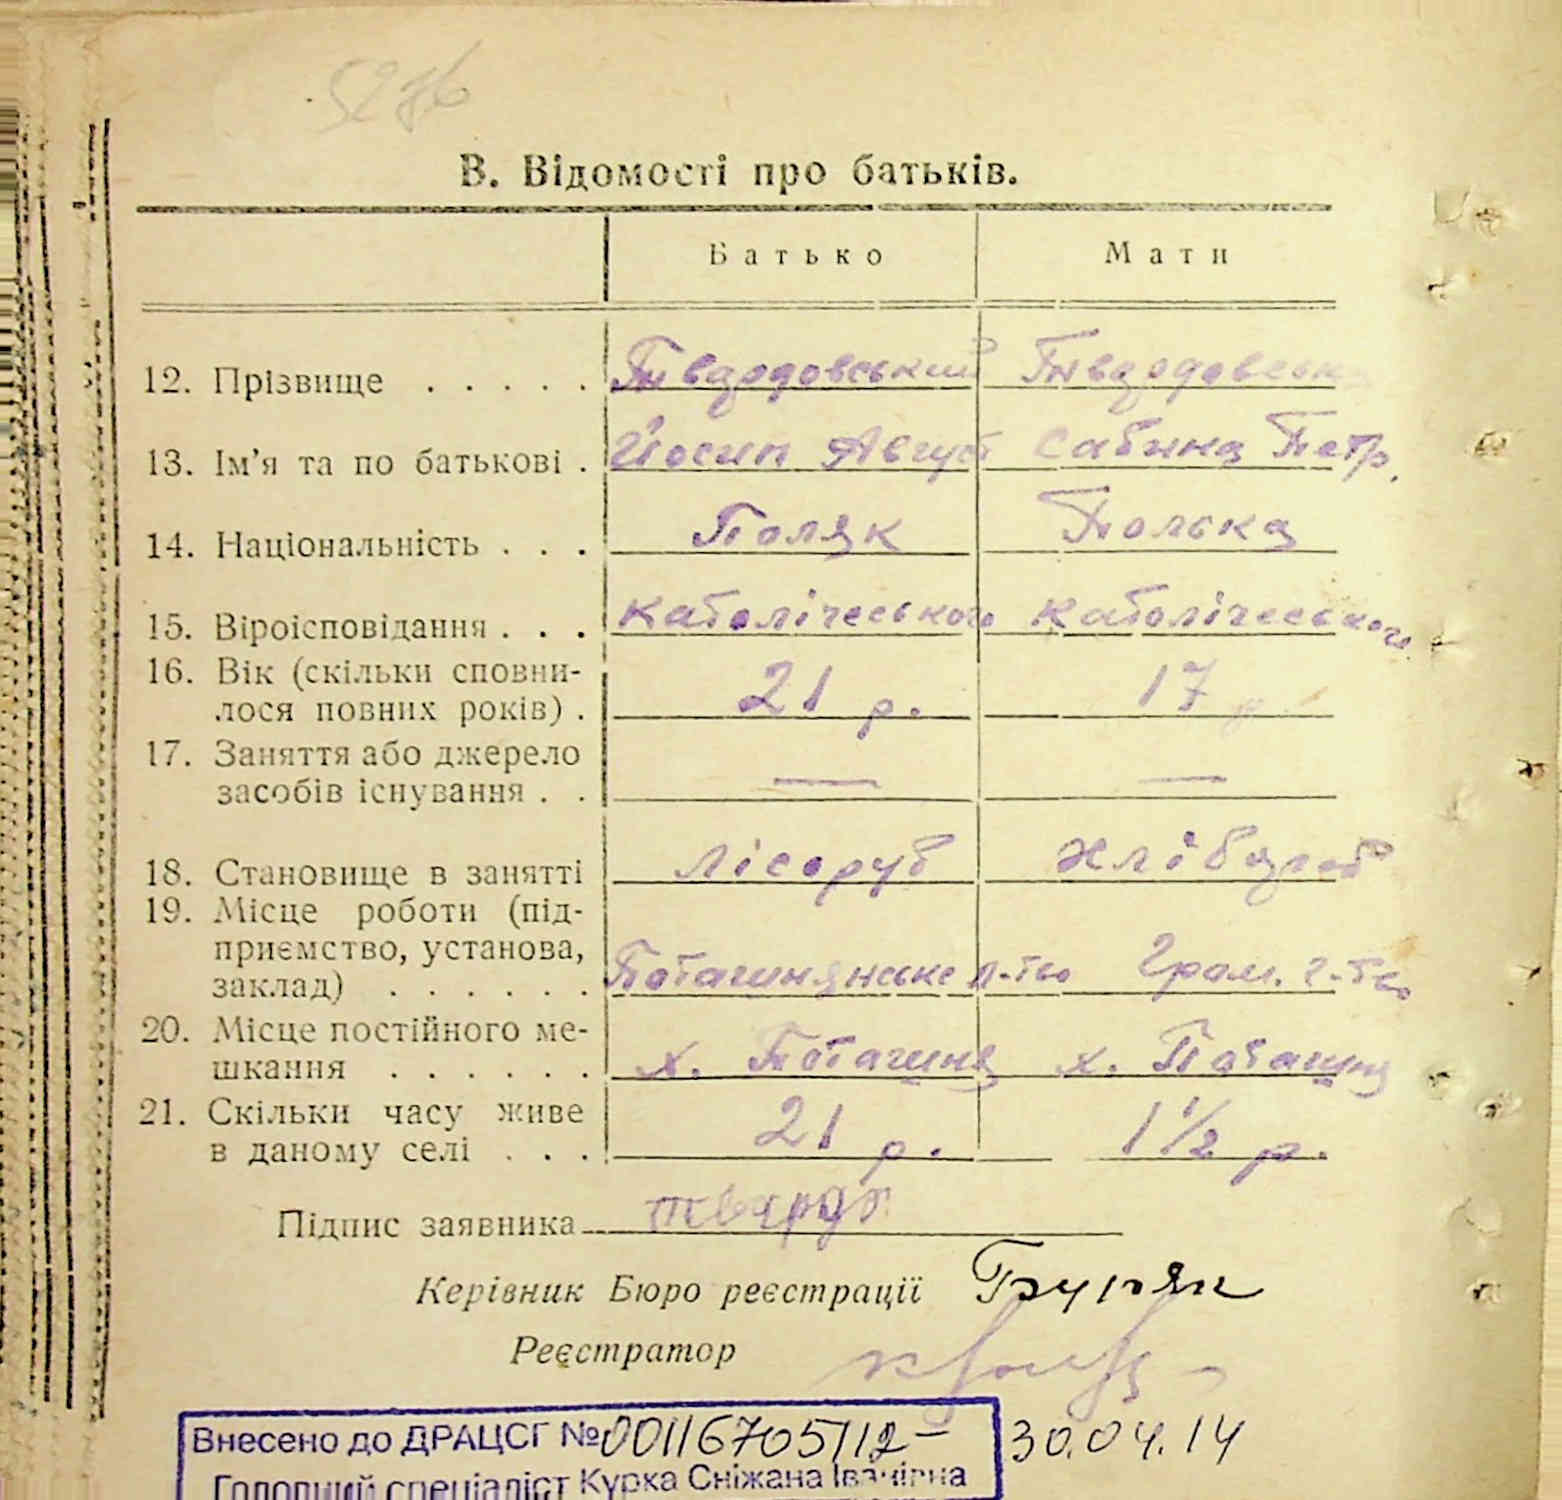 5276
В. Відомості про батьків.
Батько Мати
12. Прізвище . . . . . Твардовський Твардовська
13. Ім'я та по батькові . Йосип Август Сабина Петр.
14. Національність . . . Поляк Полька
15. Віроісповідання . . . Католіческого Католіческого
16. Вік (скільки сповни-
лося повних років) . 21 р. 17 р
17. Заняття або джерело
засобів існування . . — —
18. Становище в занятті Лісоруб Хлібороб
19. Місце роботи (під-
приємство, установа,
заклад) . . . . . . Поташнянське л-тво Гром. г-тво
20. Місце постійного ме-
шкання . . . . . . х. Поташня х. Поташня
21. Скільки часу живе
в даному селі . . . 21 р. 1 1/2 р.
Підпис заявника Твардо
Керівник Бюро реєстрації
Реєстратор
Внесено до ДРАЦСГ №00116705112 30.04.14
Головний спеціаліст Курка Сніжана Іванівна